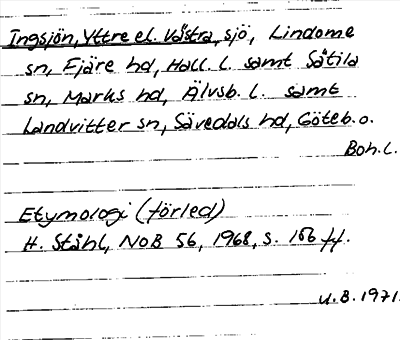 Ingsjön, Yttre el. Västra, sjö, Lindome
sn, Fjäre hd, Hall. l. samt Sätila
sn, Marks hd, Älvsb. l. samt
Landvitter sn, Sävedals hd, Göteb. o.
Boh. l.
Etymologi (förled)
H. Ståhl, NoB 56, 1968, s. 156 ff.
U.B. 1971